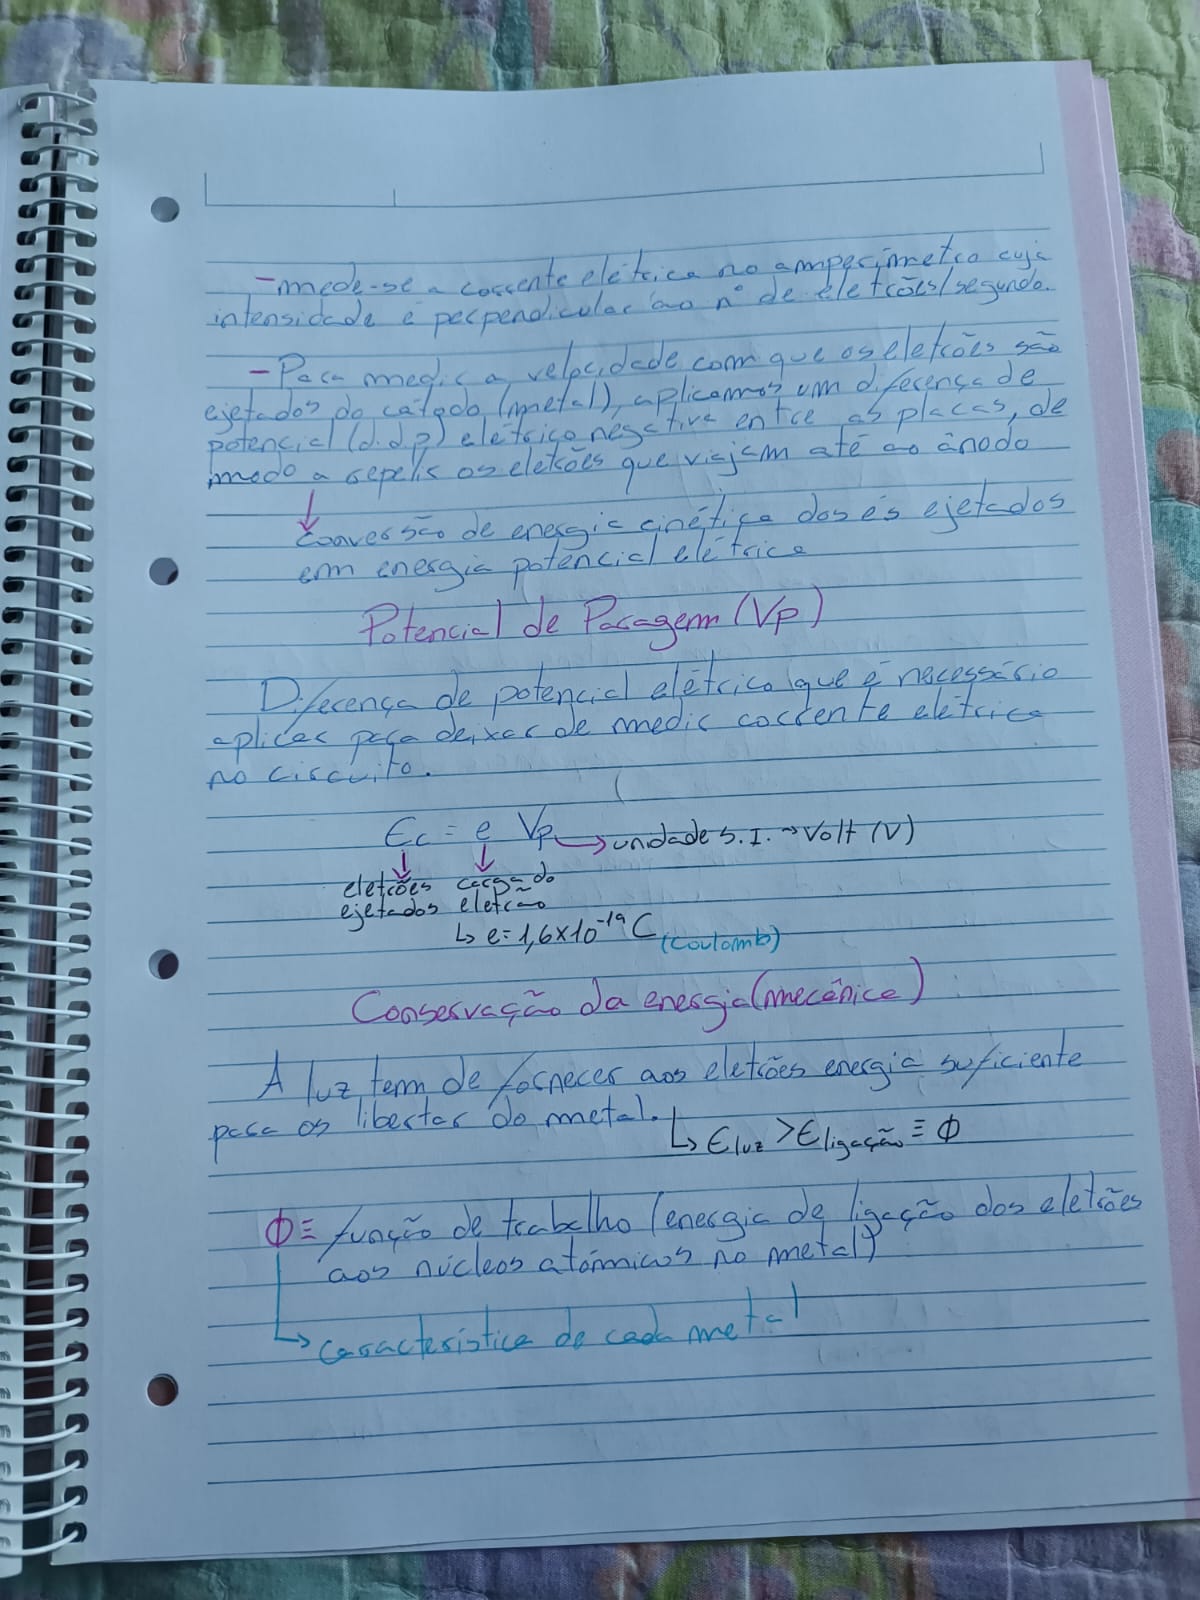 - mede-se a corrente elétrica no amperímetro cuja
intensidade é perpendicular ao nº de eletrões/segundo.
- Para medir a velocidade com que os eletrões são
ejetados do cátodo (metal), aplicamos um diferença de
potencial (d.d.p) elétrico negativa entre as placas, de
modo a repelir os eletrões que viajam até ao ânodo
↓
Conversão de energia cinética dos és ejetados
em energia potencial elétrica
Potencial de Paragem (Vp)
Diferença de potencial elétrico que é necessário
aplicar para deixar de medir corrente elétrica
no circuito.
Ec = e Vp → unidade S.I. → Volt (V)
eletrões carga do
ejetados eletrão
↳ e = 1,6×10⁻¹⁹ C (Coulomb)
Conservação da energia (mecânica)
A luz tem de fornecer aos eletrões energia suficiente
para os libertar do metal.
↳ Eluz > Eligação ≡ Φ
Φ ≡ função de trabalho (energia de ligação dos eletrões
aos núcleos atómicos no metal)
↳ característica de cada metal